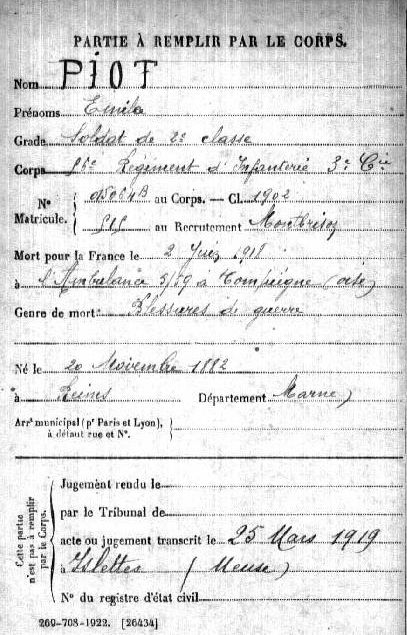 PARTIE À REMPLIR PAR LE CORPS.
Nom PIOT
Prénoms Emile
Grade Soldat de 2e classe
Corps Régiment d'Infanterie 3e Cie
N° Matricule. au Corps. — Cl. 1902
au Recrutement Montbrison
Mort pour la France le 2 Juin 1918
à l'Ambulance 5/59 à Compiègne (oise)
Genre de mort: Blessures de guerre
Né le 20 Novembre 1882
à Reims Département Marne)
Arrt municipal (pr Paris et Lyon), à défaut rue et N°.
Cette partie n'est pas à remplir par le Corps.
Jugement rendu le
par le Tribunal de
acte ou jugement transcrit le 25 Mars 1919
à Islettes (Meuse)
N° du registre d'état civil
269-708-1922. [26434]